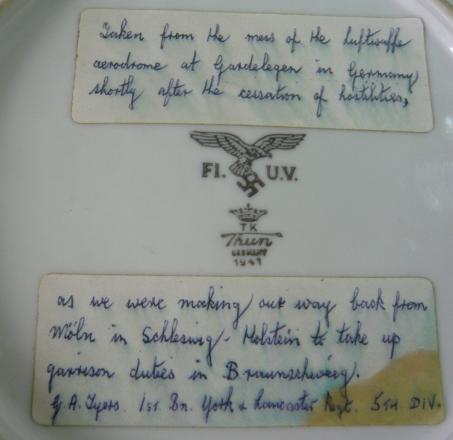 Taken from the mess of the Luftwaffe
aerodrome at Gardelegen in Germany,
shortly after the cessation of hostilities,
Fl. U.V.
TK
Thun
GERMANY
1941
as we were making our way back from
Möln in Schleswig-Holstein to take up
garrison duties in Braunschweig.
G.A. Tyers. 1st. Bn. York & Lancaster Regt. 5TH DIV.